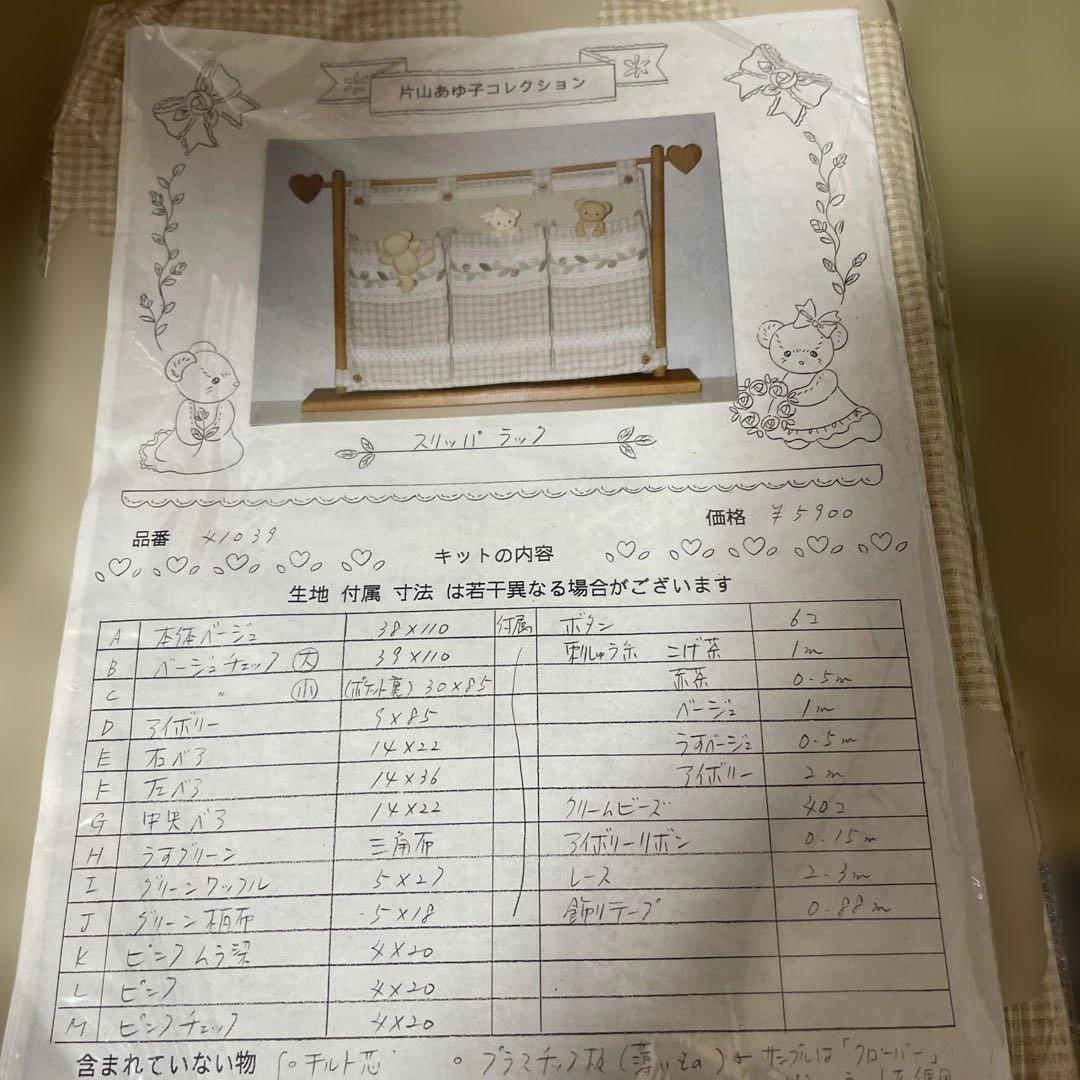 片山あゆ子コレクション
スリッパ ラック
品番 41039 価格 ¥5900
キットの内容
生地 付属 寸法 は若干異なる場合がございます
A 本体ベージュ 38×110 付属 ボタン 6コ
B ベージュチェック 大 39×110 刺しゅう糸 こげ茶 1m
C 〃 小 (ポケット裏) 30×85 赤茶 0.5m
D アイボリー 9×85 ベージュ 1m
E 右ベア 14×22 うすベージュ 0.5m
F 左ベア 14×36 アイボリー 2m
G 中央ベア 14×22 クリームビーズ 40コ
H うすグリーン 三角布 アイボリーリボン 0.15m
I グリーンワッフル 5×27 レース 2.3m
J グリーン柄布 5×18 飾りテープ 0.88m
K ピンクムラ染 4×20
L ピンク 4×20
M ピンクチェック 4×20
含まれていない物 ○キルト芯 ○プラスチック板(薄いもの) サンプルは「クローバー」